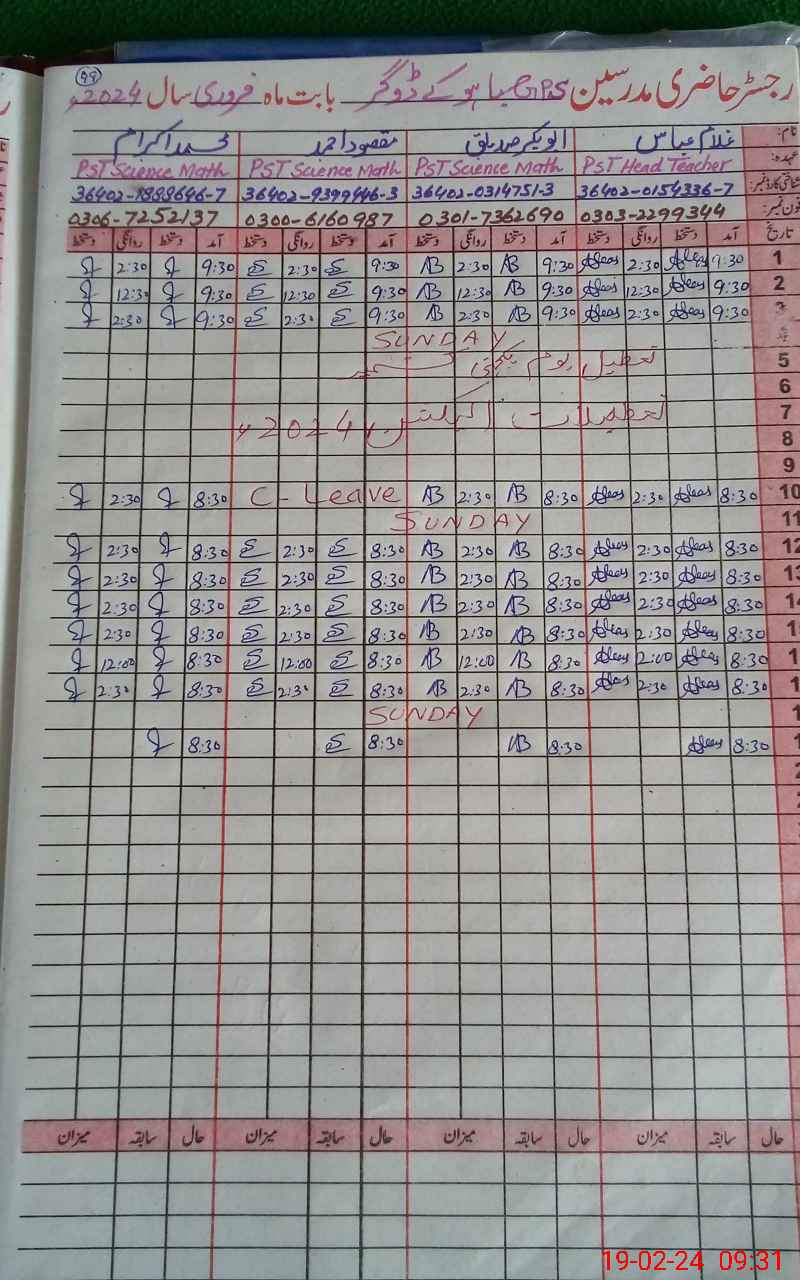 99
رجسٹر حاضری مدرسین GPS جھیا ہوکے ڈوگر بابت ماہ فروری سال 2024ء
نام: غلام عباس ابوبکر صدیق مقصود احمد محمد اکرام
عہدہ: PST Head Teacher PST Science Math PST Science Math PST Science Math
شناختی کارڈ نمبر: 36402-0154336-7 36402-0314751-3 36402-9399446-3 36402-1888646-7
فون نمبر: 0303-2299344 0301-7362690 0300-6160987 0306-7252137
تاریخ آمد دستخط روانگی دستخط آمد دستخط روانگی دستخط آمد دستخط روانگی دستخط آمد دستخط روانگی دستخط
1 9:30 Abbas 2:30 Abbas 9:30 AB 2:30 AB 9:30 2:30 9:30 2:30
2 9:30 Abbas 12:30 Abbas 9:30 AB 12:30 AB 9:30 12:30 9:30 12:30
3 9:30 Abbas 2:30 Abbas 9:30 AB 2:30 AB 9:30 2:30 9:30 2:30
SUNDAY
5 تعطیل یوم یکجہتی کشمیر
6
7 تعطیلات الیکشن 2024ء
8
9
10 8:30 Abbas 2:30 Abbas 8:30 AB 2:30 AB C-Leave 8:30 2:30
11 SUNDAY
12 8:30 Abbas 2:30 Abbas 8:30 AB 2:30 AB 8:30 2:30 8:30 2:30
13 8:30 Abbas 2:30 Abbas 8:30 AB 2:30 AB 8:30 2:30 8:30 2:30
14 8:30 Abbas 2:30 Abbas 8:30 AB 2:30 AB 8:30 2:30 8:30 2:30
1 8:30 Abbas 2:30 Abbas 8:30 AB 2:30 AB 8:30 2:30 8:30 2:30
1 8:30 Abbas 12:00 Abbas 8:30 AB 12:00 AB 8:30 12:00 8:30 12:00
1 8:30 Abbas 2:30 Abbas 8:30 AB 2:30 AB 8:30 2:30 8:30 2:30
1 SUNDAY
1 8:30 Abbas 8:30 AB 8:30 8:30
2
2
حال سابقہ میزان حال سابقہ میزان حال سابقہ میزان حال سابقہ میزان
19-02-24 09:31